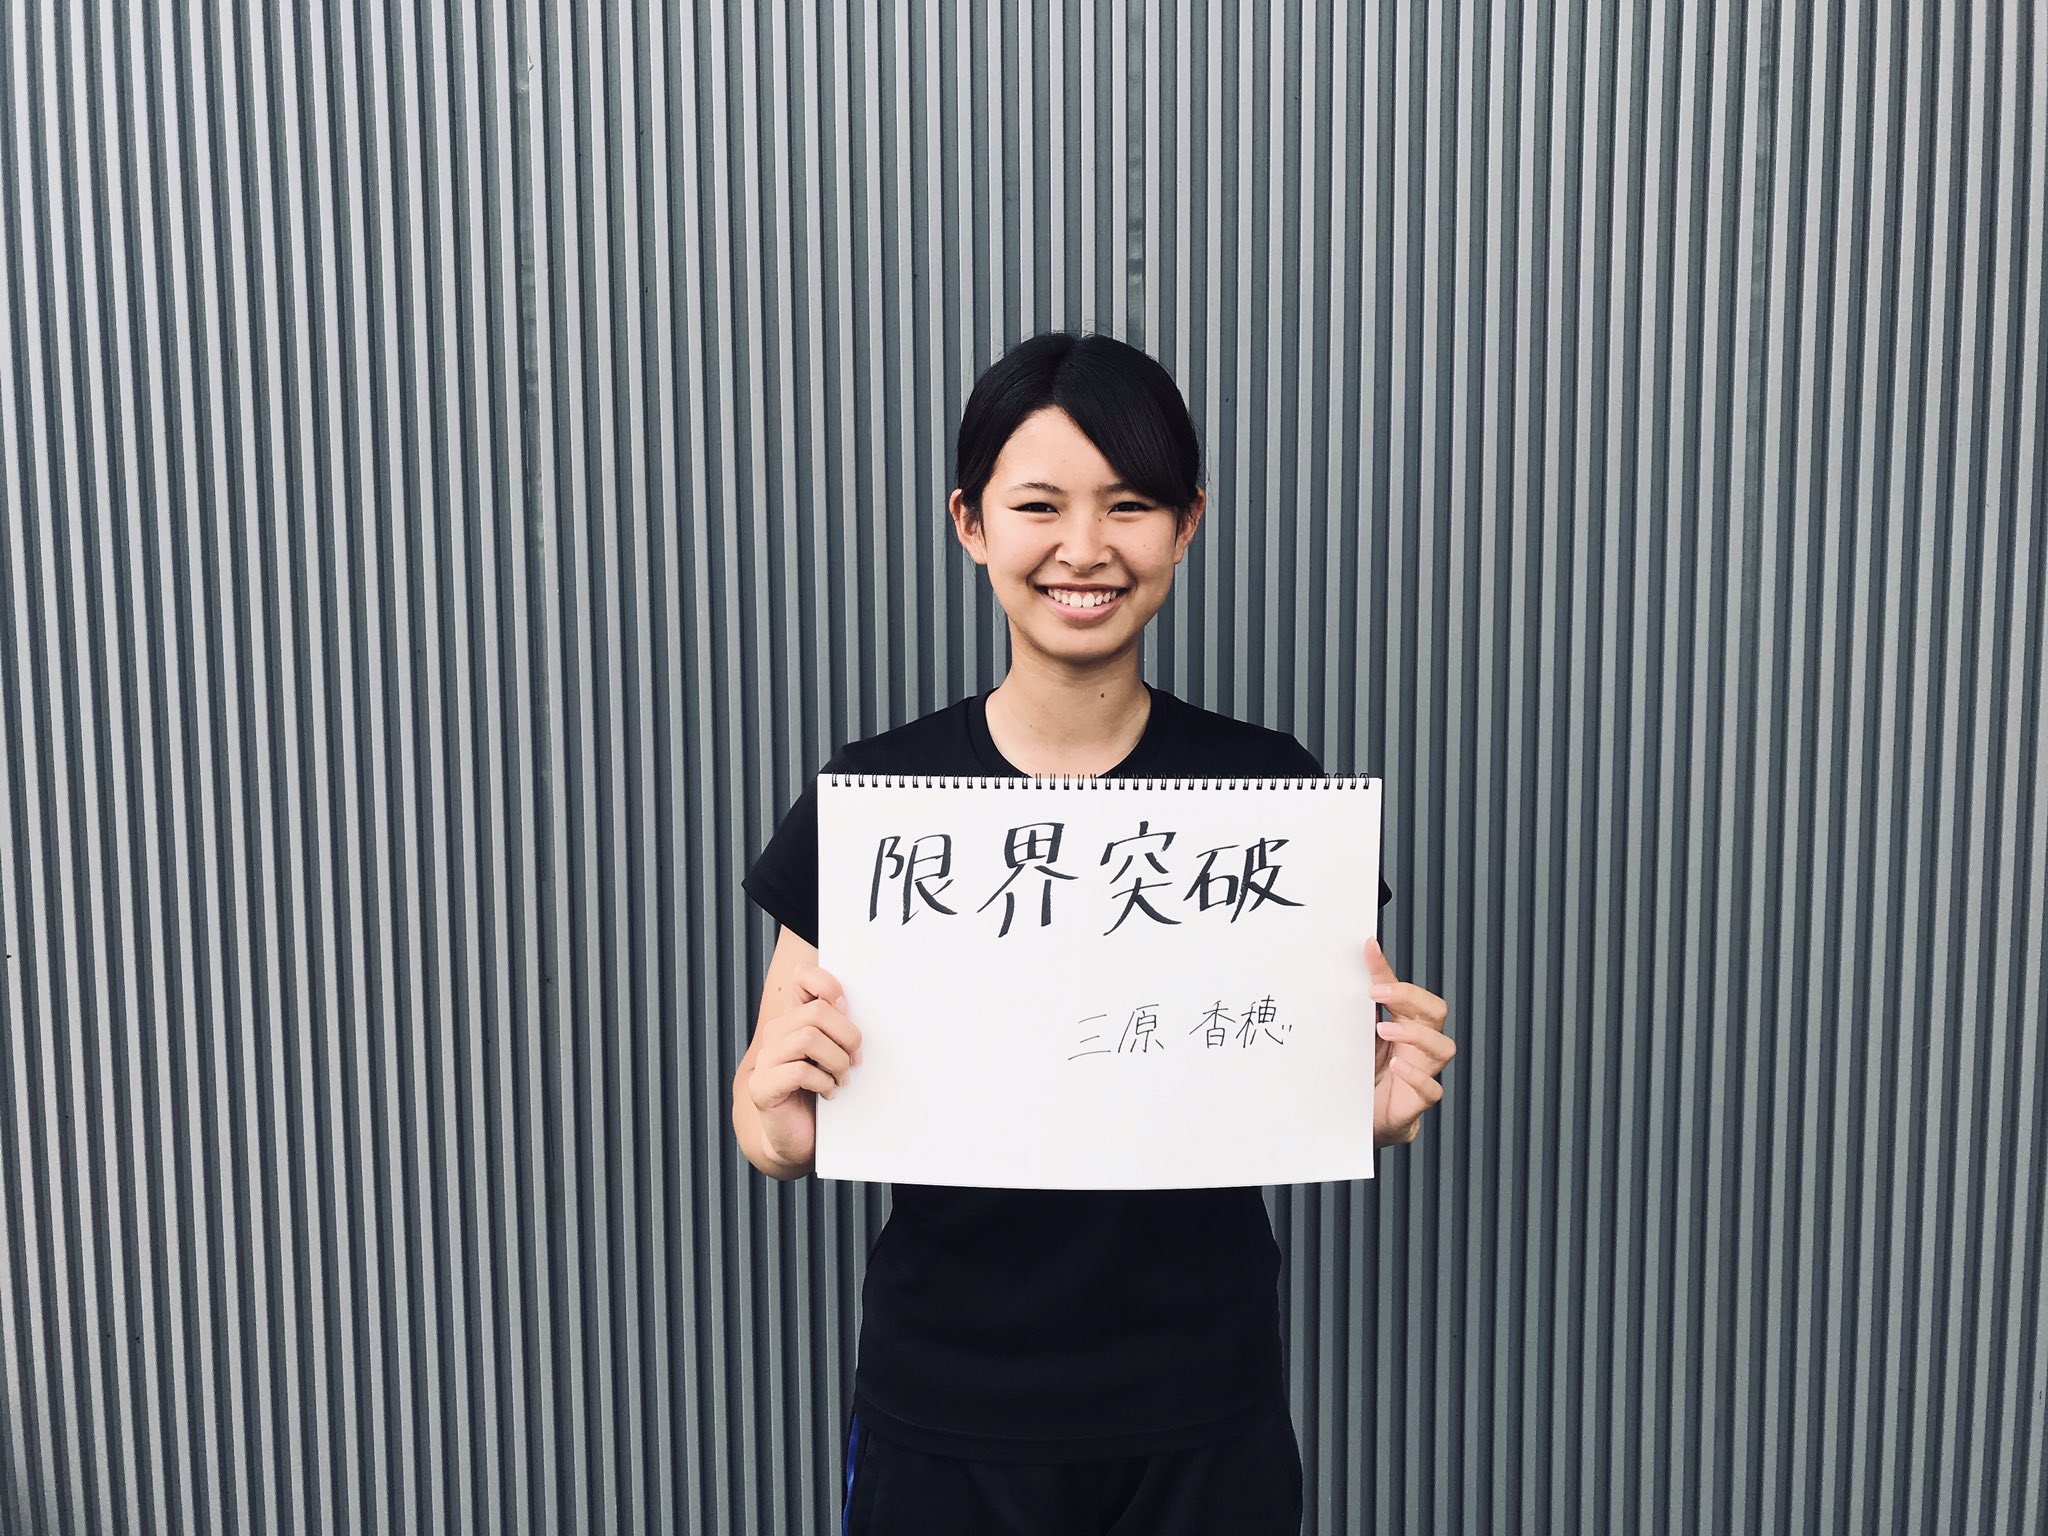 限界突破
三原 香穂